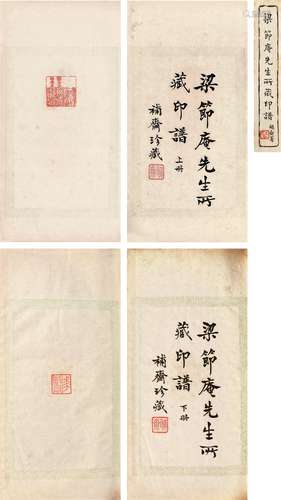 梁節庵先生所
藏印譜 上册
補齋珍藏
梁節庵先生所藏印譜
梁節庵先生所
藏印譜 下册
補齋珍藏